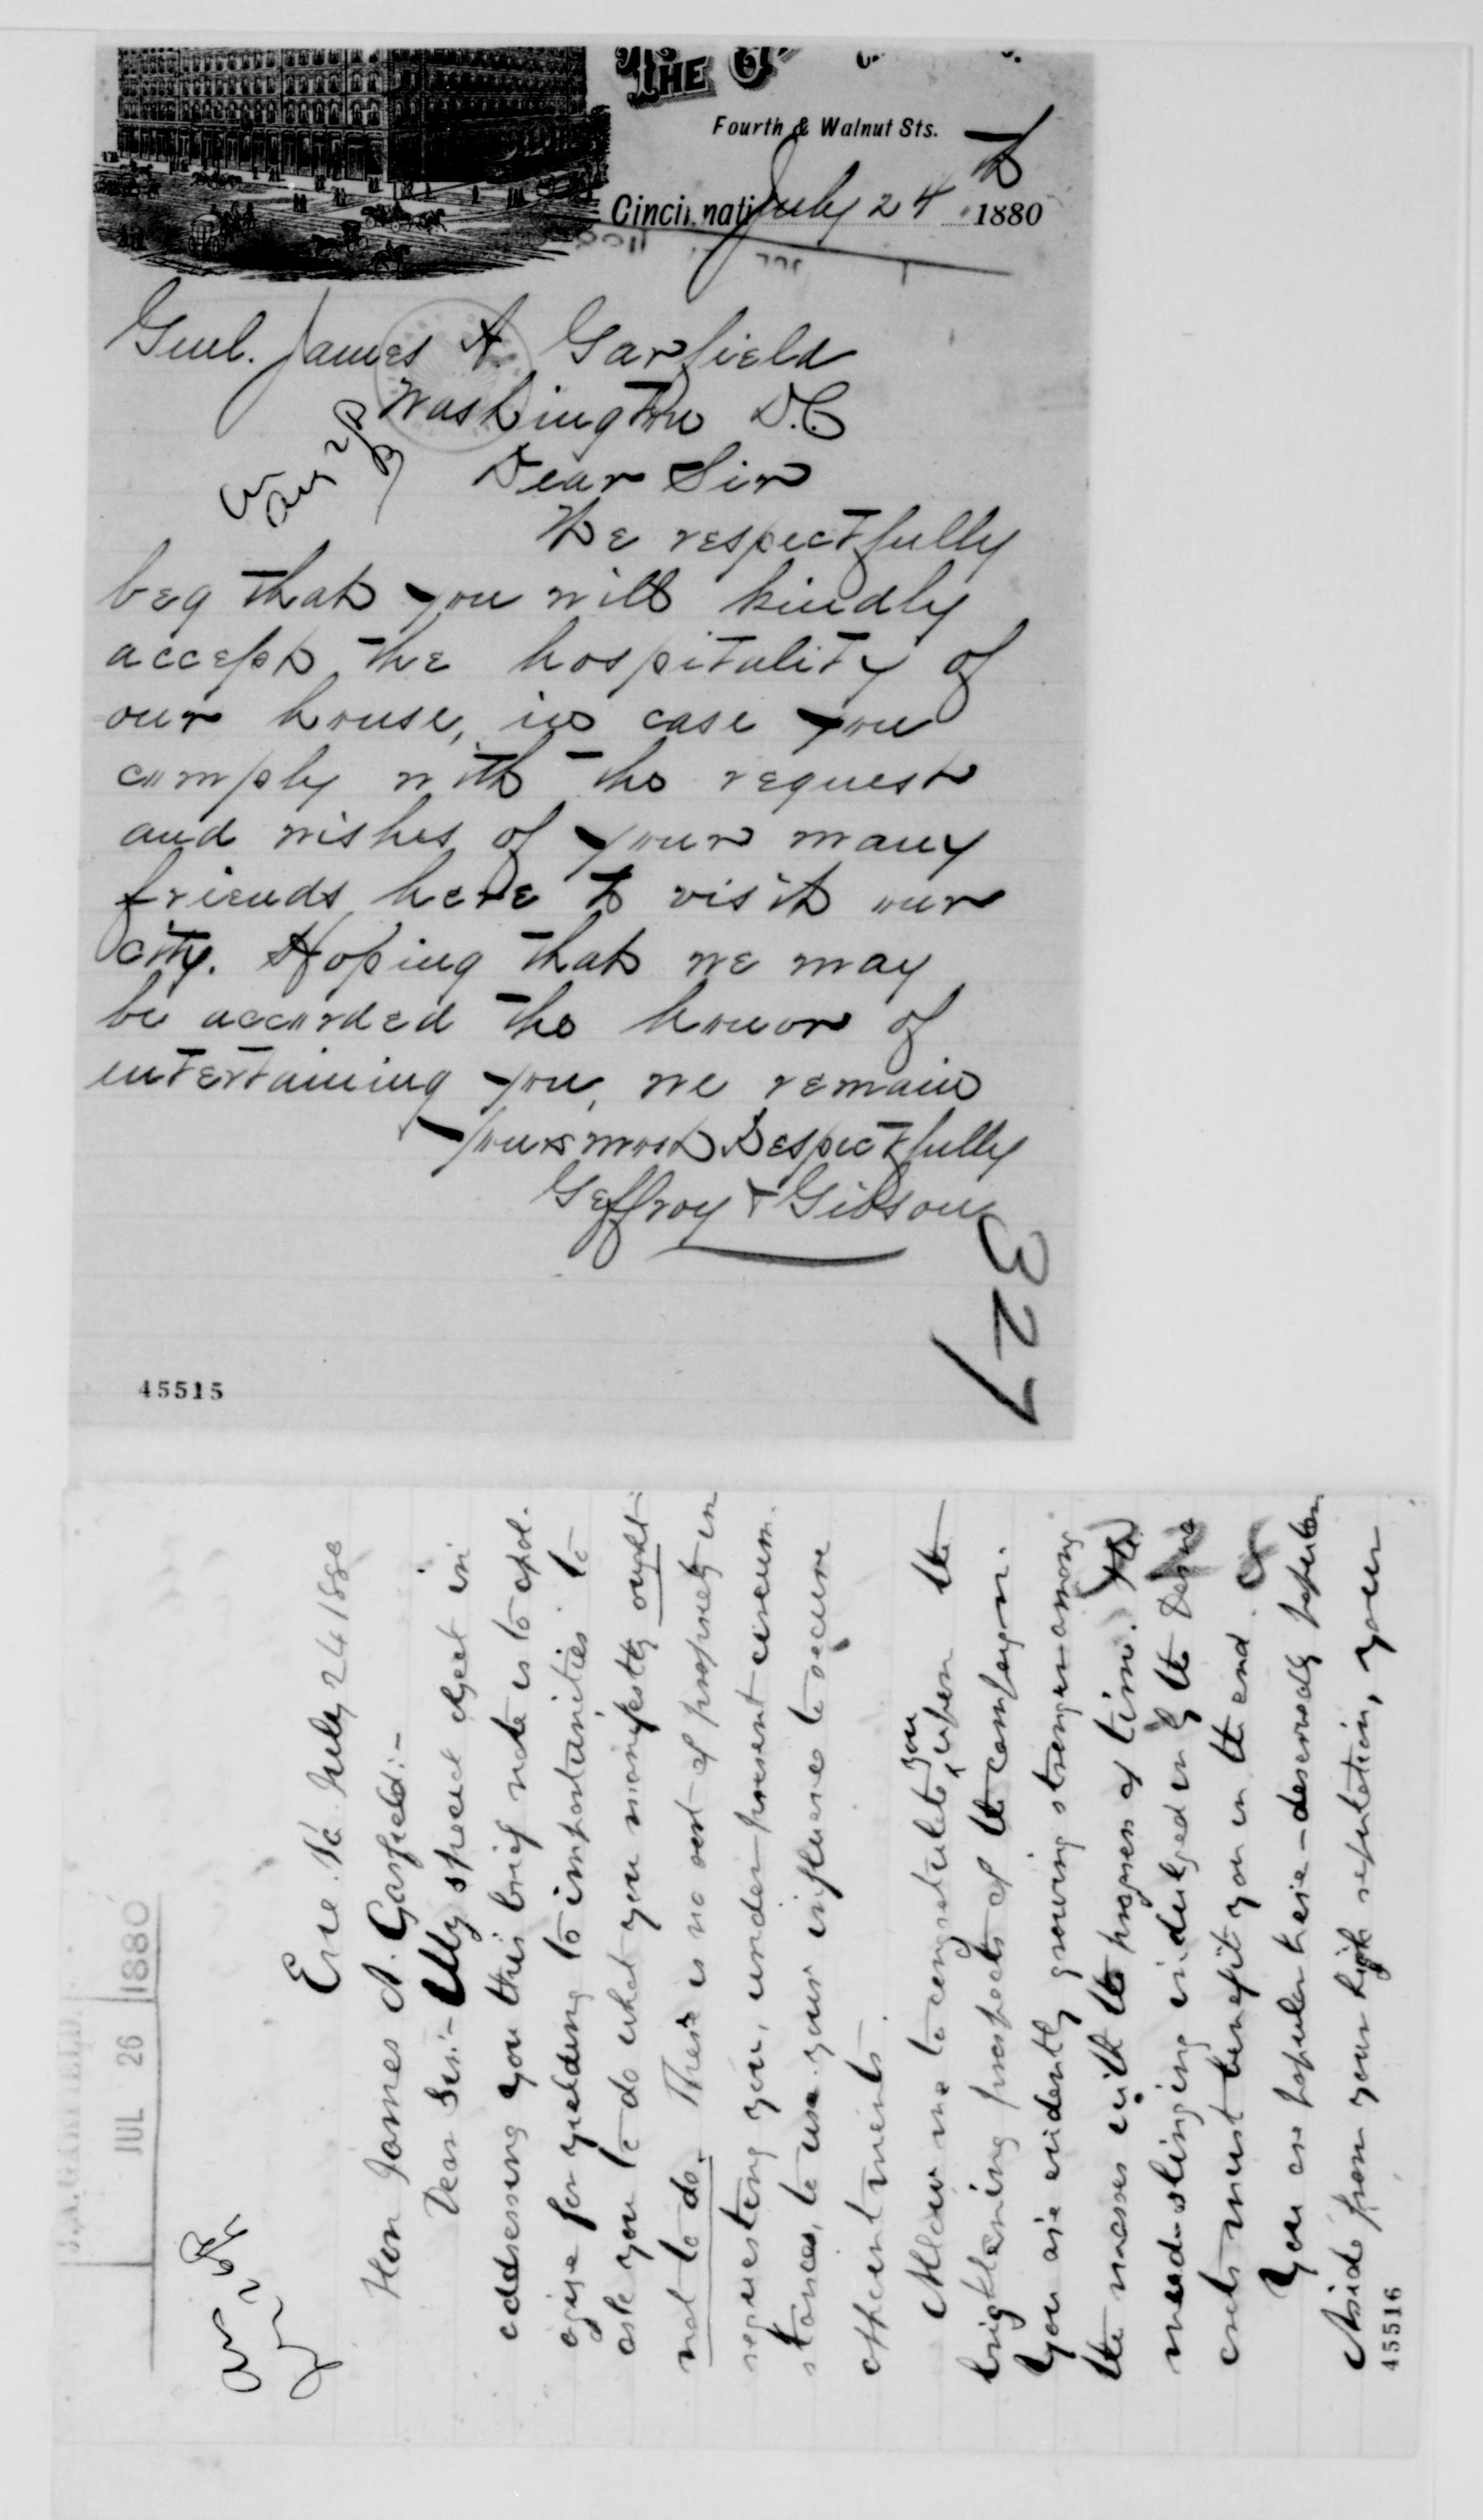 THE G
Fourth & Walnut Sts.
Cincinnati July 24 1880
Genl. James A. Garfield
Washington D.C.
Dear Sir
We respectfully
beg that you will kindly
accept the hospitality of
our house, in case you
comply with the request
and wishes of your many
friends here to visit our
city. Hoping that we may
be accorded the honor of
entertaining you, we remain
Yours most Respectfully
Geffroy & Gibson
327
45515
J.A. GARFIELD
JUL 26 1880
Erie Pa. July 24 1880
Hon James A. Garfield:-
Dear Sir:- My special object in
addressing you this brief note is to apol-
ogize for yielding to importunities to
ask you to do what you manifestly ought
not to do. There is no sort of propriety in
requesting you, under present circum-
stances, to use your influence to secure
appointments.
Allow me to congratulate you upon the
brightening prospects of the campaign.
You are evidently growing stronger among
the masses with the progress of time. The
mud-slinging indulged in by the Demo
crats must benefit you in the end.
You are popular here - deservedly popular.
Aside from your high reputation, your
45516